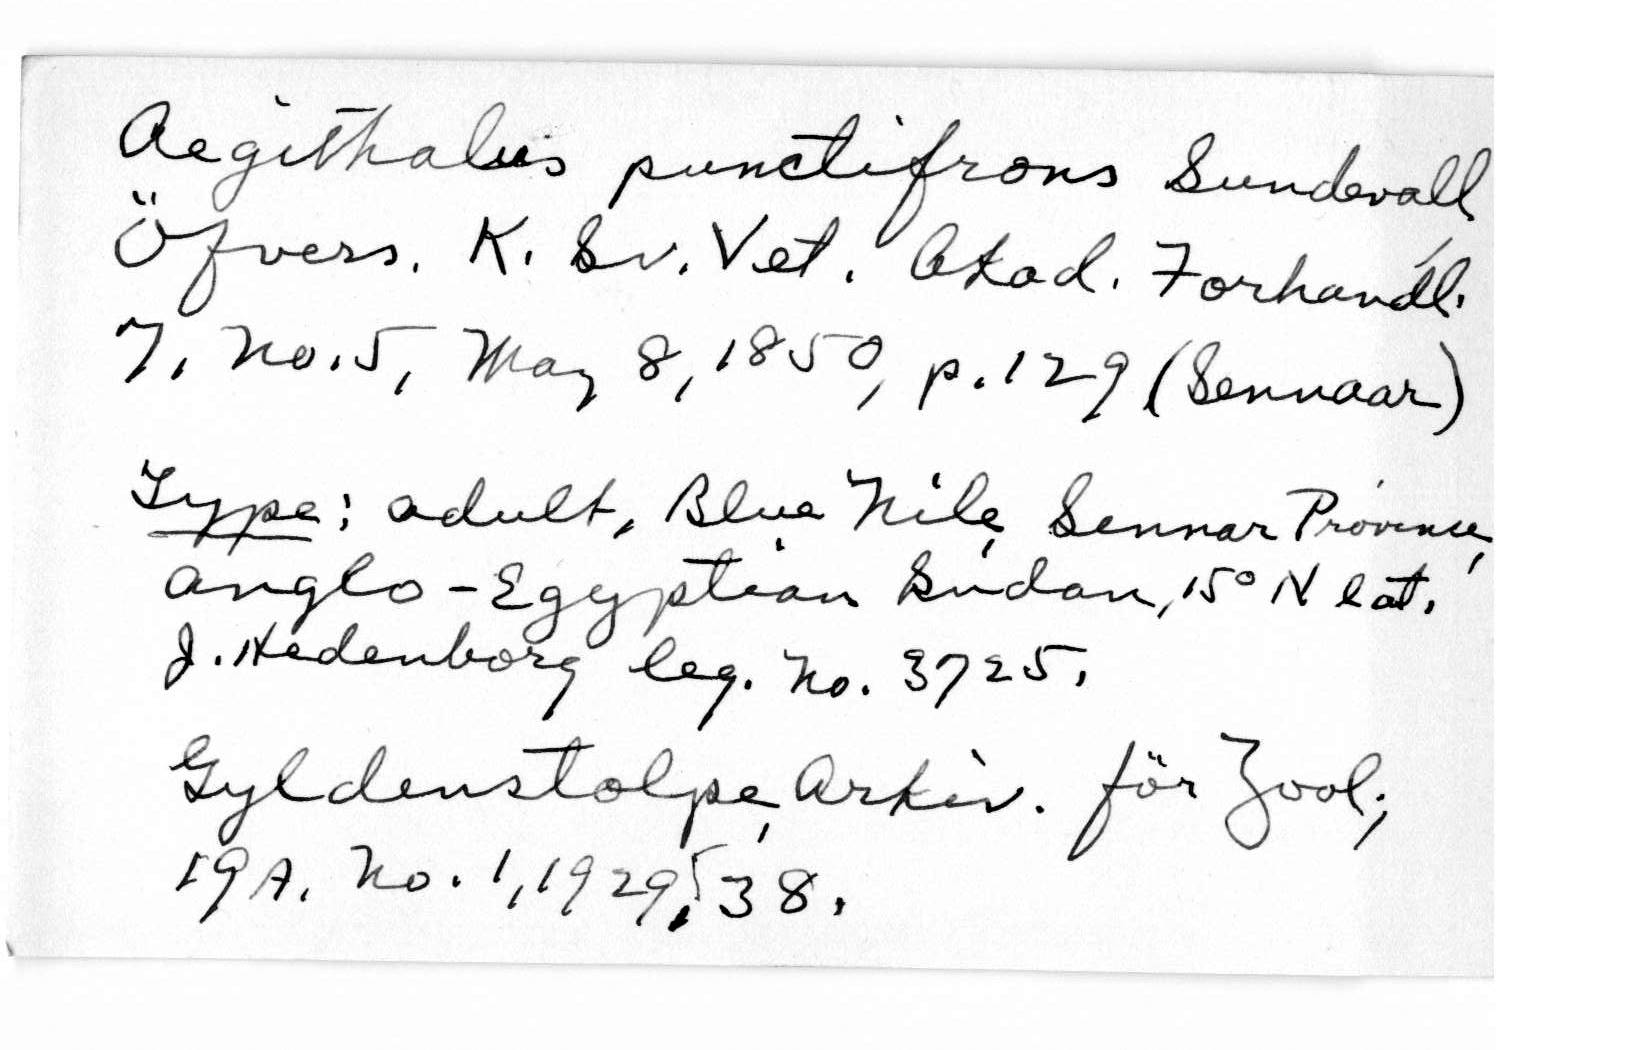 Aegithalus punctifrons Sundevall,
Öfvers. K. Sv. Vet. Akad. Forhandl.
7, No. 5, May 8, 1850, p. 129 (Sennaar)
Type: adult, Blue Nile, Sennar Province,
Anglo-Egyptian Sudan, 15° N lat.
J. Hedenborg leg. No. 3725.
Gyldenstolpe, Arkiv. för Zool;
19A, No. 1, 1929, 38.